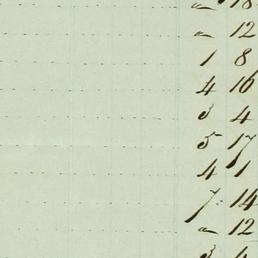 " 18
" 12
1 8
4 16
3 4
5 17
4 1
7 14
" 12
3 4